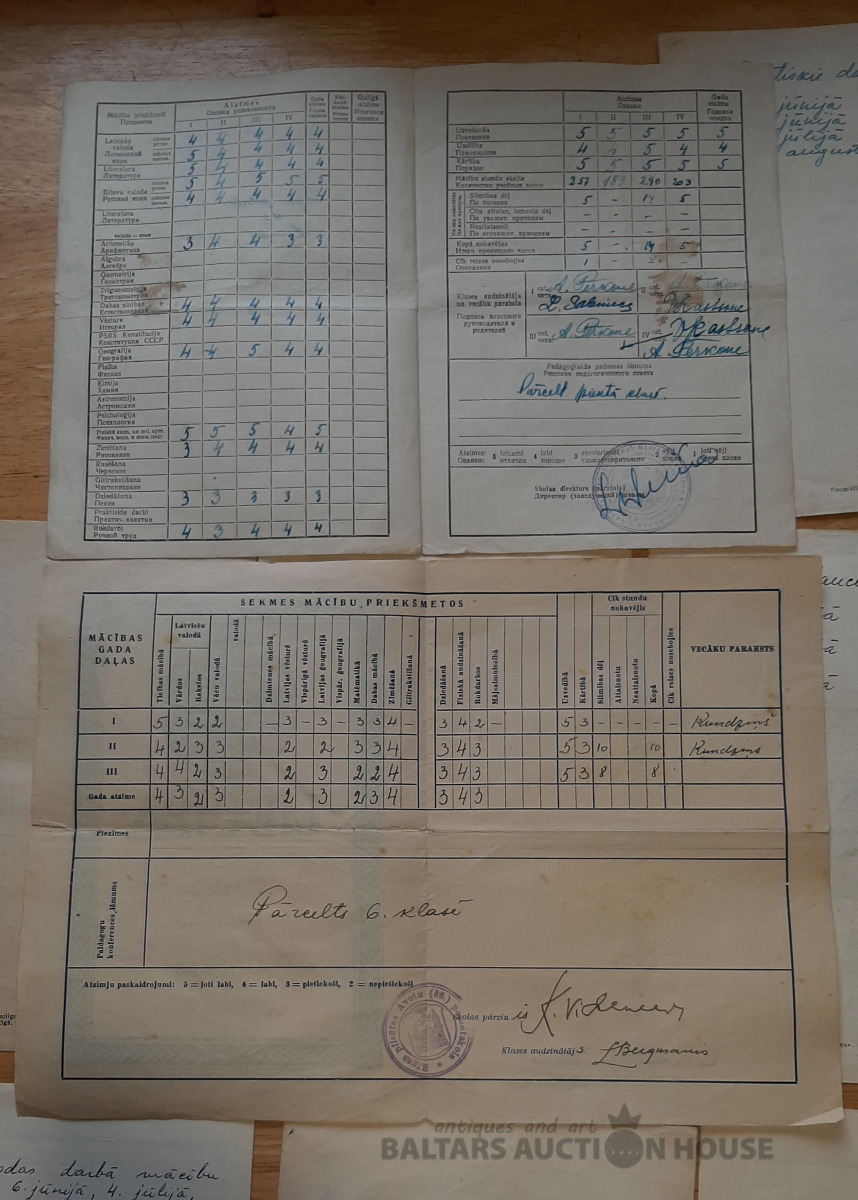 Mācību priekšmeti
Предметы
Atzīmes
Оценка успеваемости
I II III IV
Gada atzīme
Годовая оценка
Galīgā atzīme
Итоговая оценка
Latviešu valoda
Латышский язык
4 4 4 4 4
5 4 4 4 4
Literatūra
Литература
5 4 4 4 4
Krievu valoda
Русский язык
5 4 5 5 5
4 4 4 4 4
Literatūra
Литература
valoda — язык
Aritmētika
Арифметика
3 4 4 3 3
Algebra
Алгебра
Ģeometrija
Геометрия
Trigonometrija
Тригонометрия
Dabas zinības
Естествознание
4 4 4 4 4
Vēsture
История
4 4 4 4 4
PSRS Konstitūcija
Конституция СССР
Ģeogrāfija
География
4 4 5 4 4
Fizika
Физика
Ķīmija
Химия
Astronomija
Астрономия
Psiholoģija
Психология
5 5 5 4 5
Zīmēšana
Рисование
3 4 4 4 4
Rasēšana
Черчение
Glītrakstīšana
Чистописание
Dziedāšana
Пение
3 3 3 3 3
Praktiskie darbi
Практич. занятия
Rokdarbi
Ручной труд
4 3 4 4 4
Atzīmes
Оценки
I II III IV
Gada atzīme
Годовая оценка
Uzvešanās
Поведение
5 5 5 5 5
Uzcītība
Прилежание
4 4 5 4 4
Kārtība
Порядок
5 5 5 5 5
Mācību stundu skaits
Количество учебных часов
257 189 290 203
Slimības dēļ
По болезни
5 - 14 5
Citu attaisn. iemeslu dēļ
По уважит. причинам
- - - -
Neattaisnoti
По неуважит. причинам
- - - -
Kopā nokavējis
Итого пропущено часов
5 - 14 5
Cik reizes nosebojies
Опоздания
1 -
Klases audzinātāja un vecāku paraksts
Подпись классного руководителя и родителей
A. Perkone
A. Perkone
A. Perkone
Pedagoģiskās padomes lēmums
Решение педагогического совета
Pārcelt piektā klasē.
Atzīmes: 5 teicami 4 labi 3 apmierinoši 2 vāji 1 ļoti vāji
Оценки: отлично хорошо удовлетворительно плохо очень плохо
Skolas direktors (pārzinis)
Директор (заведующий) школы
jūnijā
jūnijā
jūlijā
august
SEKMES MĀCĪBU PRIEKŠMETOS
MĀCĪBAS GADA DAĻAS
Ticības mācībā
Latviešu valodā
Vārdos
Rakstos
Vācu valodā
valodā
Dzimtenes mācībā
Latvijas vēsturē
Vispārīgā vēsturē
Latvijas ģeogrāfijā
Vispār. ģeogrāfijā
Matēmatikā
Dabas mācībā
Zīmēšanā
Glītrakstīšanā
Dziedāšanā
Fiziskā audzināšanā
Rokdarbos
Mājsaimniecībā
Uzvedībā
Kārtībā
Cik stundu nokavējis
Slimības dēļ
Attaisnotu
Neattaisnotu
Kopā
Cik reizes nosebojies
VECĀKU PARAKSTS
I 5 3 2 2 — 3 — 3 — 3 3 4 — 3 4 2 — 5 3 - - - - - Kundziņš
II 4 2 3 3 2 2 3 3 4 3 4 3 5 3 10 10 Kundziņš
III 4 4 2 3 2 3 2 2 4 3 4 3 5 3 8 8
Gada atzīme 4 3 2 3 2 3 2 3 4 3 4 3
Piezīmes
Paidagogu konferences lēmums
Pārcelts 6. klasē
Atzīmju paskaidrojumi: 5 = ļoti labi, 4 = labi, 3 = pietiekoši, 2 = nepietiekoši
Skolas pārzinis
Klases audzinātājs LBergmanis
antiques and art
BALTARS AUCTION HOUSE
odas darbā mācību
6. jūnijā, 4. jūlijā,